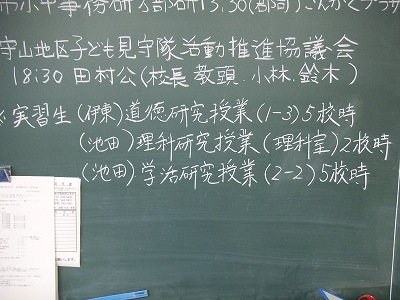 市小中事務研 13:30(郡司)
守山地区子ども見守隊活動推進協議会
18:30 田村公(校長 教頭 小林 鈴木)
※実習生(伊東)道徳研究授業(1-3)5校時
(池田)理科研究授業(理科室)2校時
(池田)学活研究授業(2-2)5校時